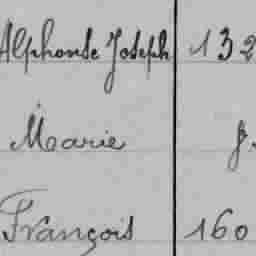 Alphonse Joseph 132
Marie
François 160